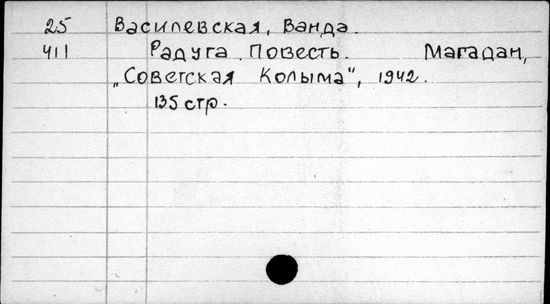 25 Василевская, Ванда.
411 Радуга. Повесть. Магадан,
„Советская Колыма", 1942.
135 стр.